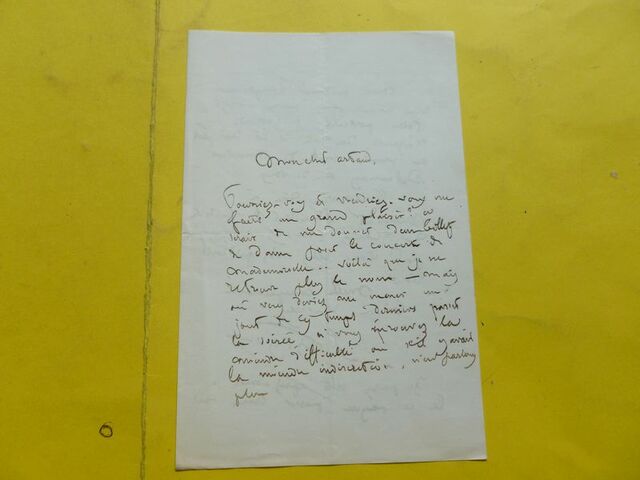 Mon cher artaud,
Pourriez-vous & voudriez-vous me
faire un grand plaisir? ce
serait de me donner deux billets
de dame pour le concert de
Mademoiselle.. voilà que je ne
retrouve plus le nom — mais
où vous deviez me mener un
jour de ces temps derniers passer
la soirée si vous éprouvez la
moindre difficulté ou s'il y avait
la moindre indiscrétion, n'en parlons
plus